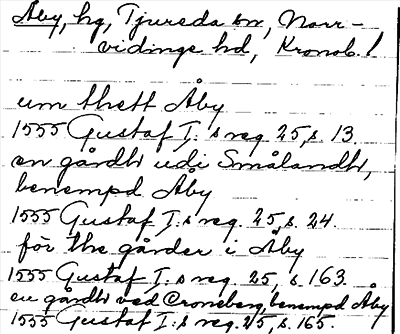 Åby, hg, Tjureda sn, Norr-
vidinge hd, Kronob. l
um thett Åby
1555 Gustaf I:s reg. 25, s. 13.
en gårdh udi Smålandh,
benempd Åby
1555 Gustaf I:s reg. 25, s. 24.
för the gårder i Åby
1555 Gustaf I:s reg. 25, s. 163.
en gårdh ved Croneberg, benempd Åby
1555 Gustaf I:s reg. 25, s. 165.